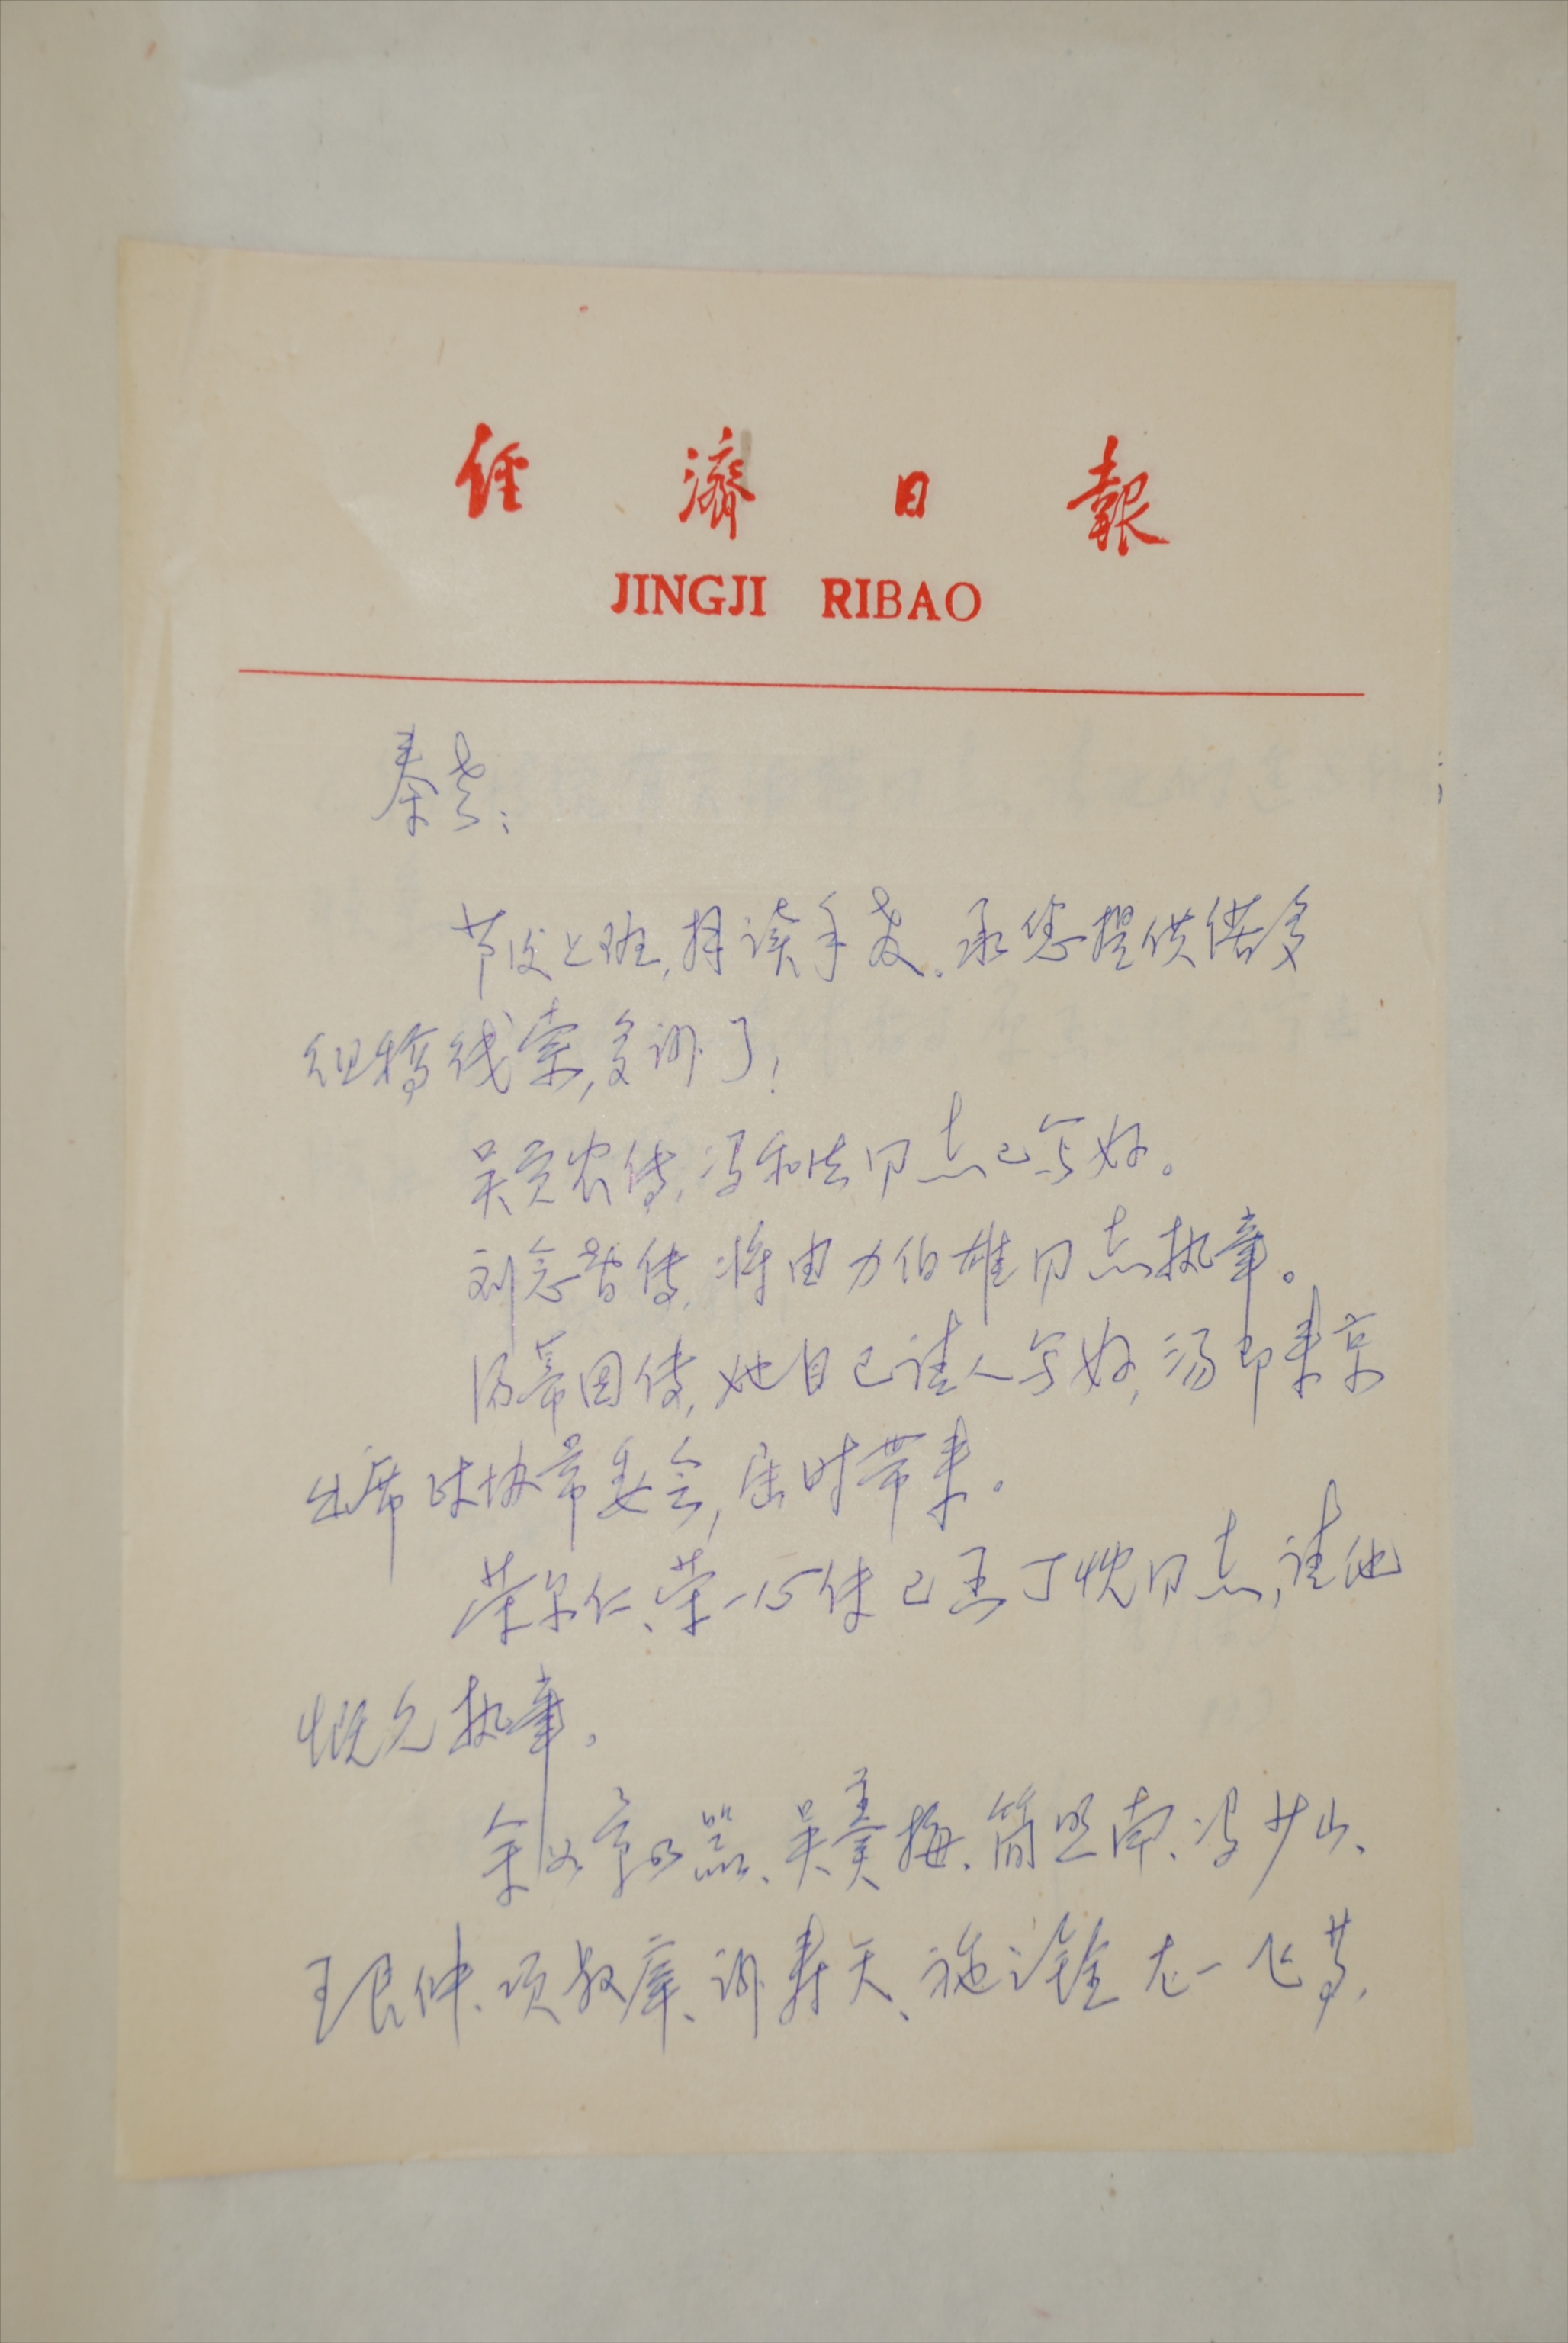 經濟日報
JINGJI RIBAO
秦老：
节后上班，拜读手教。承您提供偌多
组稿线索，多谢了！
吴觉农传，冯和法同志已写好。
刘念智传，将由力伯雄同志执笔。
汤蒂因传，她自己请人写好，汤即来京
出席政协常委会，届时带来。
荣尔仁、荣一心传已函丁忱同志，请他
慨允执笔。
余如章乃器、吴羹梅、简照南、冯少山、
王艮仲、项叔翔、谢寿天、施